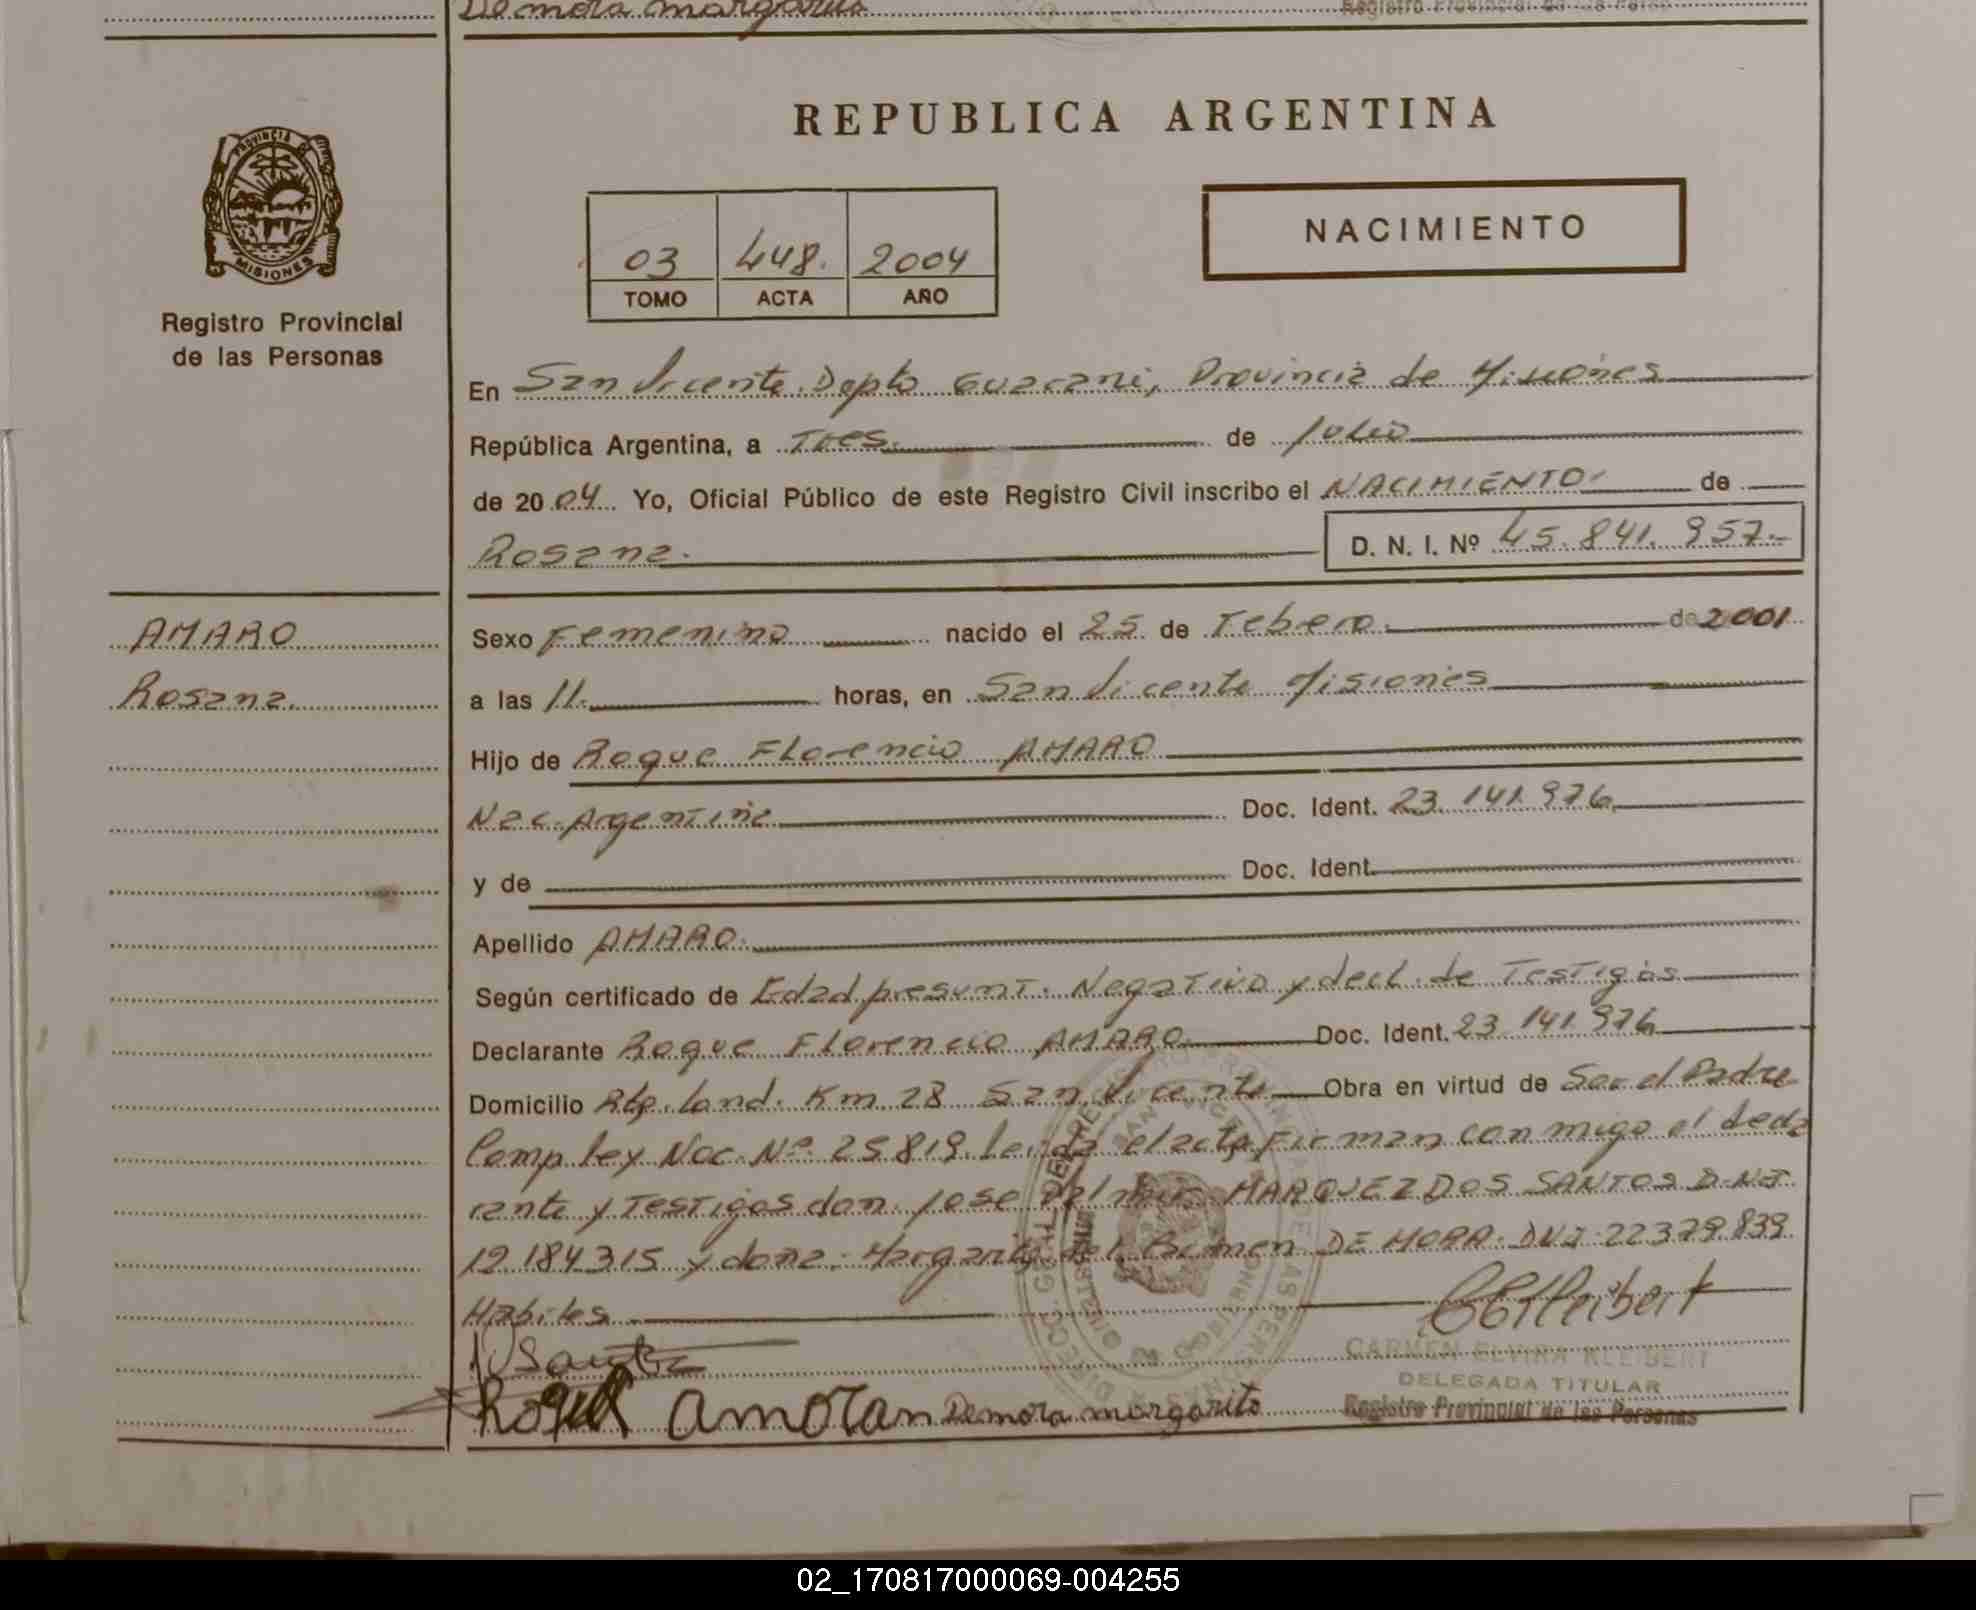 Demora margarito
Registro Provincial de las Perso
PROVINCIA DE
MISIONES
Registro Provincial
de las Personas
REPUBLICA ARGENTINA
03 448. 2004
TOMO ACTA AÑO
NACIMIENTO
En San Vicente. Depto Guarani, Provincia de Misiones
República Argentina, a Tres. de Julio
de 2004 Yo, Oficial Público de este Registro Civil inscribo el NACIMIENTO de
Rosana. D. N. I. Nº 45.841.957.-
AMARO
Rosana.
Sexo Femenino nacido el 25 de Febero. de 2001
a las 11. horas, en San Vicente Misiones
Hijo de Roque Florencio AMARO
Nac. Argentina Doc. Ident. 23.141.976
y de Doc. Ident.
Apellido AMARO.
Según certificado de Edad presunt. Negativo y decl. de Testigos
Declarante Roque Florencio AMARO Doc. Ident. 23.141.976
Domicilio Rta. Km 28 San Vicente Obra en virtud de Ser el Padre
Comp. ley Nac. Nº 25.819. Leida el acta Firman con migo el decla
rante y Testigos don. Jose MARQUEZ DOS SANTOS D.N.I.
19.184.315 y doña. Margarita del Carmen DE MORA. DNI. 22379.839.
Habiles
Roque amoran Demora margarito
CARMEN ELVIRA KLEIBERT
DELEGADA TITULAR
Registro Provincial de las Personas
02_170817000069-004255